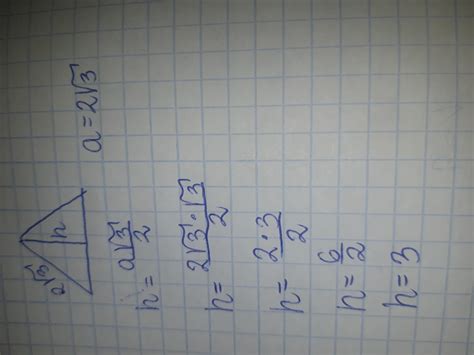 2√3 h a = 2√3
h = a√3/2
h = 2√3·√3/2
h = 2·3/2
h = 6/2
h = 3